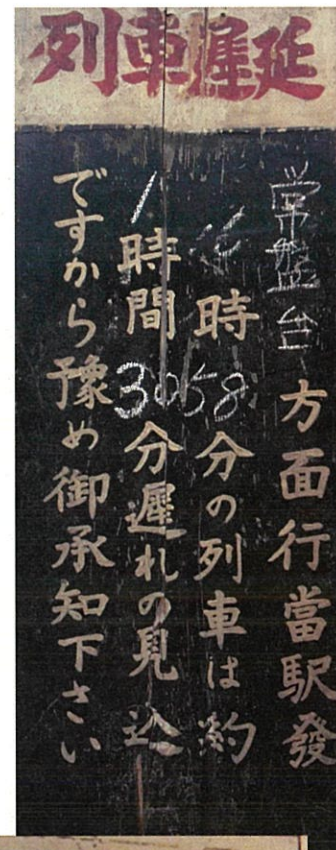 列車遲延
常盤台方面行當駅發
時58分の列車は約
1時間30分遲れの見込
ですから豫め御承知下さい